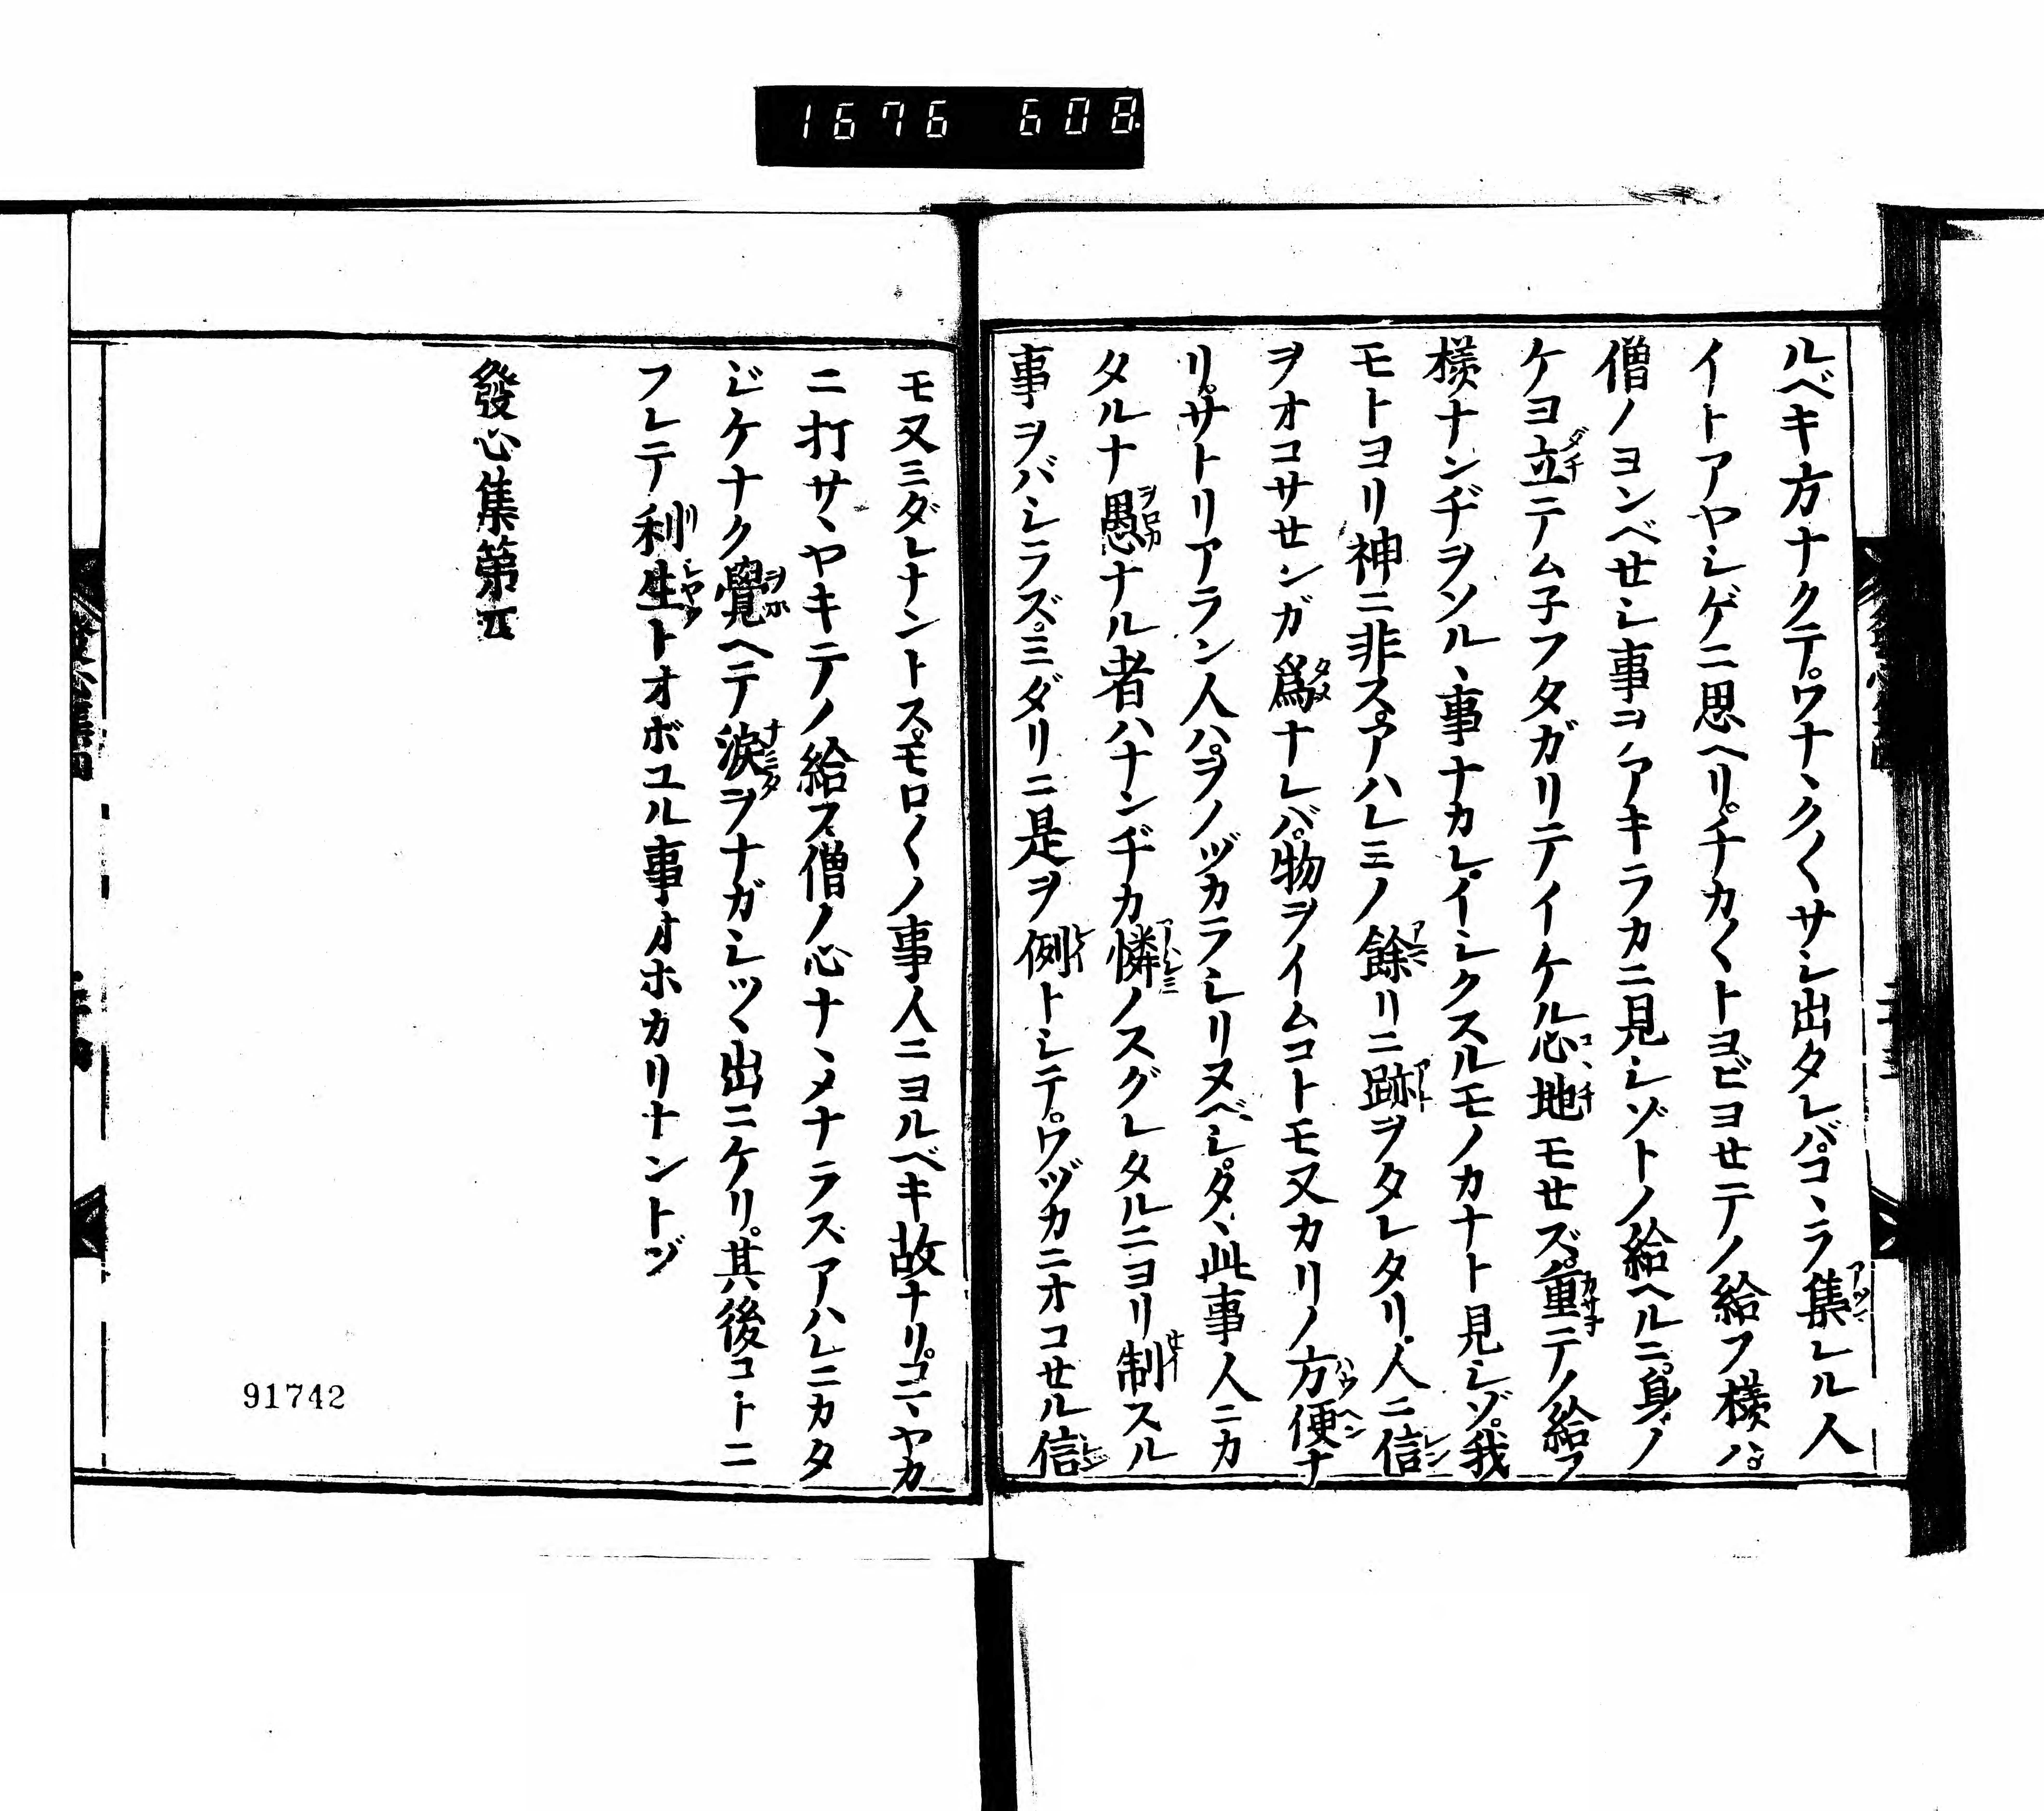 1676 608.
ルベキ方ナクテ。ワナヽク〱サシ出タレバ。コヽラ集レル人
イトアヤシゲニ思ヘリ。チカ〱トヨビヨせテノ給フ樣ハ。
僧ノヨンベせシ事ヲ。アキラカニ見シゾトノ給ヘルニ。身ノ
ケヨ立テム子フタガリテイケル心地モせズ。重テノ給フ
樣ナンヂヲソルヽ事ナカレ。イシクスルモノカナト見シゾ。我
モトヨリ神ニ非ス。アハレミノ餘リニ跡ヲタレタリ。人ニ信
ヲオコサせンガ爲ナレバ。物ヲイムコトモ又カリノ方便ナ
リ。サトリアラン人ハ。ヲノヅカラシリヌベシ。タヽ此事人ニカ
タルナ愚ナル者ハナンヂカ憐ノスグレタルニヨリ制スル
事ヲバシラズ。ミダリニ是ヲ例トシテ。ワヅカニオコせル信
モ又ミダレナントス。モロ〱ノ事人ニヨルベキ故ナリ。コマヤカ
ニ打サヽヤキテノ給フ。僧ノ心ナヽメナラズアハレニカタ
ジケナク覺ヘテ涙ヲナガシツヽ出ニケリ。其後コトニ
フレテ利生トオボユル事オホカリナントゾ
發心集第四
91742